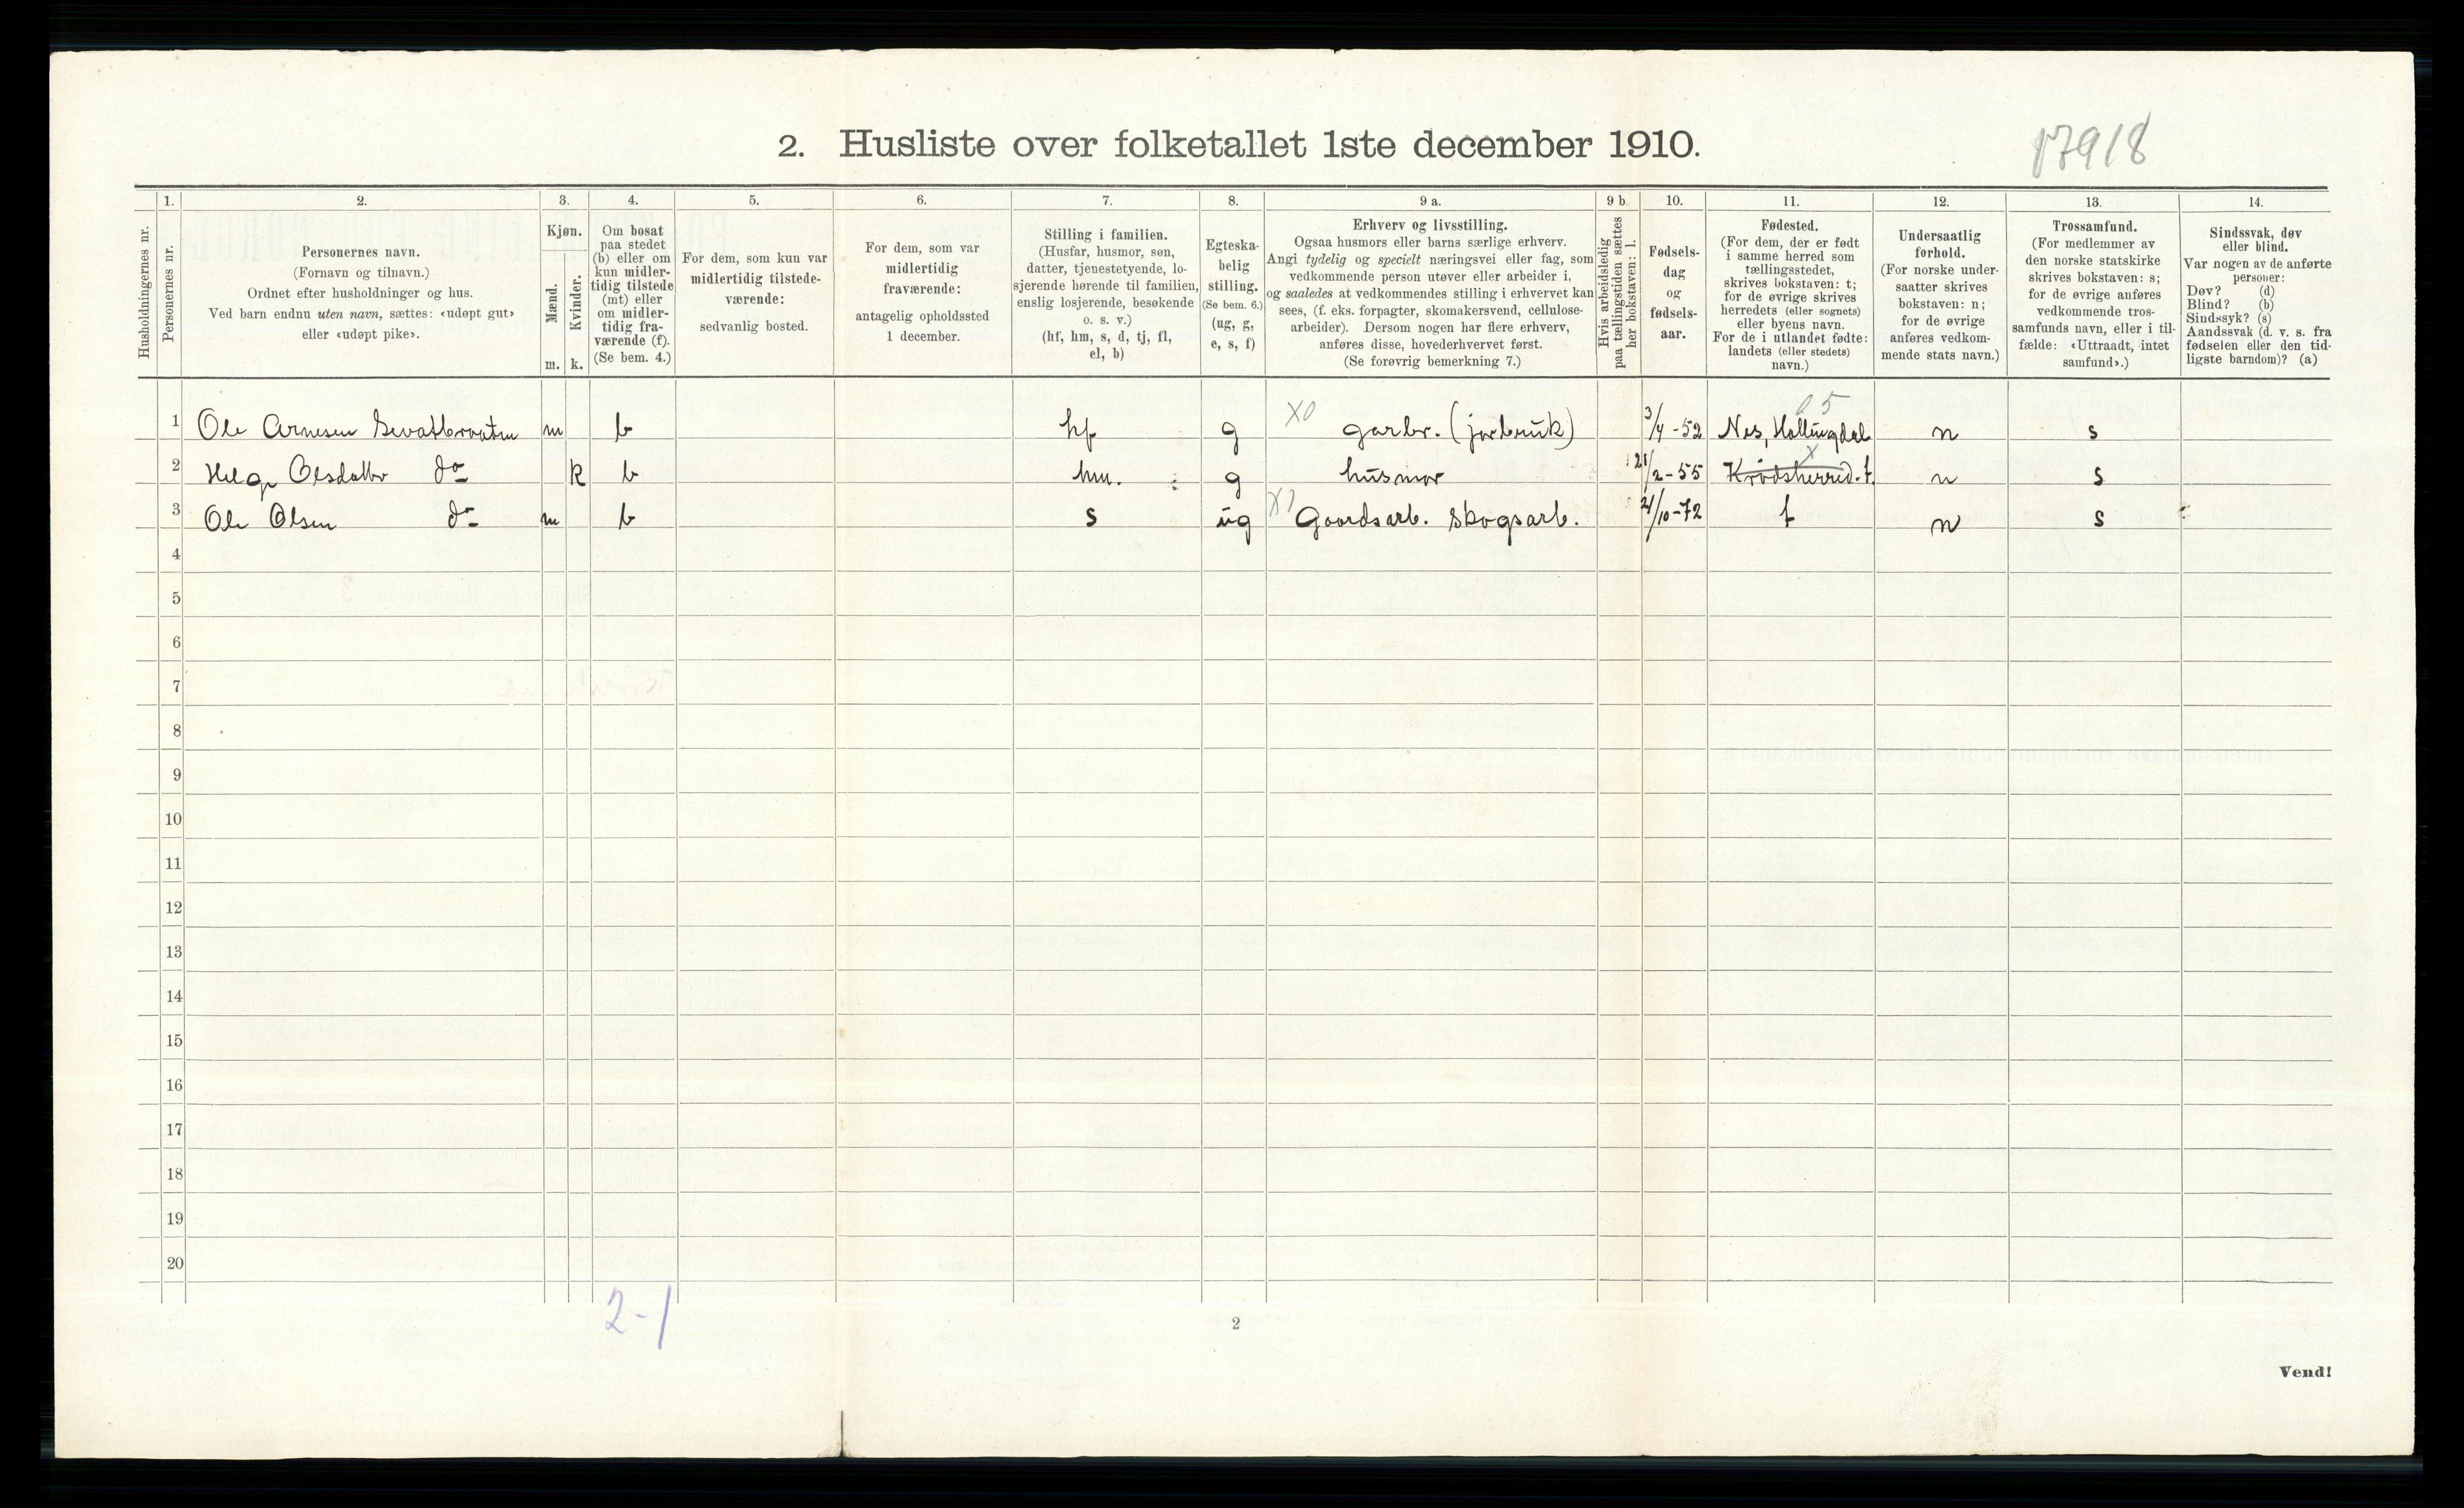 2. Husliste over folketallet 1ste december 1910.
17918
1. 2. 3. 4. 5. 6. 7. 8. 9 a. 9 b. 10. 11. 12. 13. 14.
Husholdningernes nr.
Personernes nr.
Personernes navn.
(Fornavn og tilnavn.)
Ordnet efter husholdninger og hus.
Ved barn endnu uten navn, sættes: «udøpt gut»
eller «udøpt pike».
Kjøn.
Mænd.
Kvinder.
m. k.
Om bosat
paa stedet
(b) eller om
kun midler-
tidig tilstede
(mt) eller
om midler-
tidig fra-
værende (f).
(Se bem. 4.)
For dem, som kun var
midlertidig tilstede-
værende:
sedvanlig bosted.
For dem, som var
midlertidig
fraværende:
antagelig opholdssted
1 december.
Stilling i familien.
(Husfar, husmor, søn,
datter, tjenestetyende, lo-
sjerende hørende til familien,
enslig losjerende, besøkende
o. s. v.)
(hf, hm, s, d, tj, fl,
el, b)
Egteska-
belig
stilling.
(Se bem. 6.)
(ug, g,
e, s, f)
Erhverv og livsstilling.
Ogsaa husmors eller barns særlige erhverv.
Angi tydelig og specielt næringsvei eller fag, som
vedkommende person utøver eller arbeider i,
og saaledes at vedkommendes stilling i erhvervet kan
sees, (f. eks. forpagter, skomakersvend, cellulose-
arbeider). Dersom nogen har flere erhverv,
anføres disse, hovederhvervet først.
(Se forøvrig bemerkning 7.)
Hvis arbeidsledig
paa tællingstiden sættes
her bokstaven: l.
Fødsels-
dag
og
fødsels-
aar.
Fødested.
(For dem, der er født
i samme herred som
tællingsstedet,
skrives bokstaven: t;
for de øvrige skrives
herredets (eller sognets)
eller byens navn.
For de i utlandet fødte:
landets (eller stedets)
navn.)
Undersaatlig
forhold.
(For norske under-
saatter skrives
bokstaven: n;
for de øvrige
anføres vedkom-
mende stats navn.)
Trossamfund.
(For medlemmer av
den norske statskirke
skrives bokstaven: s;
for de øvrige anføres
vedkommende tros-
samfunds navn, eller i til-
fælde: «Uttraadt, intet
samfund».)
Sindssvak, døv
eller blind.
Var nogen av de anførte
personer:
Døv? (d)
Blind? (b)
Sindssyk? (s)
Aandssvak (d. v. s. fra
fødselen eller den tid-
ligste barndom)? (a)
05
1 Ole Arnesen m b hf g X0 garbr. (jorbruk) 3/4 - 52 Nes, Hallingdal n s
2 Helge Olsdatter do k b hm. g husmor 21/2 - 55 Krødsherred. t. n s
3 Ole Olsen do m b s ug Gaardsarb. skogsarb. 21/10 - 72 t n s
4
5
6
7
8
9
10
11
12
13
14
15
16
17
18
19
20
2-1
2
Vend!